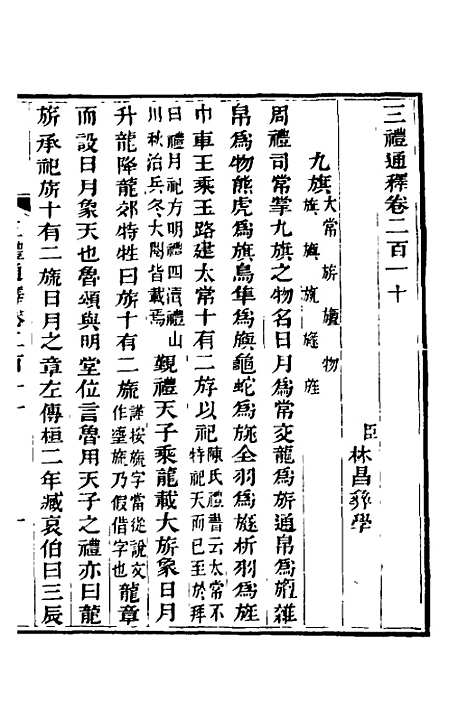 三禮通釋卷二百一十
臣林昌彝學
九旗大常旂旜物旗旟旐旞旌
周禮司常掌九旗之物名日月爲常交龍爲旂通帛爲旜雜
帛爲物熊虎爲旗鳥隼爲旟龜蛇爲旐全羽爲旞析羽爲旌
巾車王乘玉路建太常十有二斿以祀陳氏禮書云太常不特祀天而已至於拜
日禮月祀方明禮四瀆禮山川秋治兵冬大閱皆載焉覲禮天子乘龍載大旂象日月
升龍降龍郊特牲曰旂十有二旒謹按旒字當從說文作瑬旒乃假借字也龍章
而設日月象天也魯頌與明堂位言魯用天子之禮亦曰龍
旂承祀旂十有二旒日月之章左傳桓二年臧哀伯曰三辰